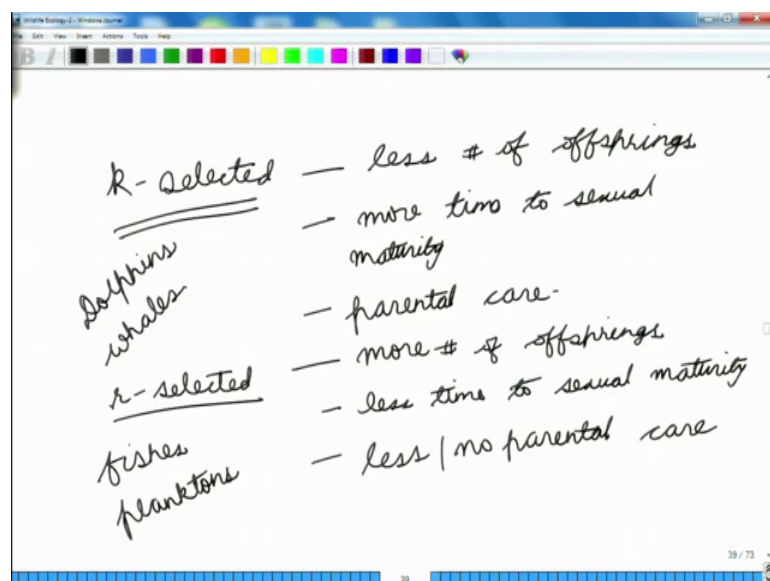 Wildlife Ecology-2 - Windows Journal
File Edit View Insert Actions Tools Help
B I
k- selected — less # of offsprings
— more time to sexual
maturity
Dolphins
whales
— parental care-
r- selected — more # of offsprings
— less time to sexual maturity
fishes
planktons
— less / no parental care
39 / 73
39